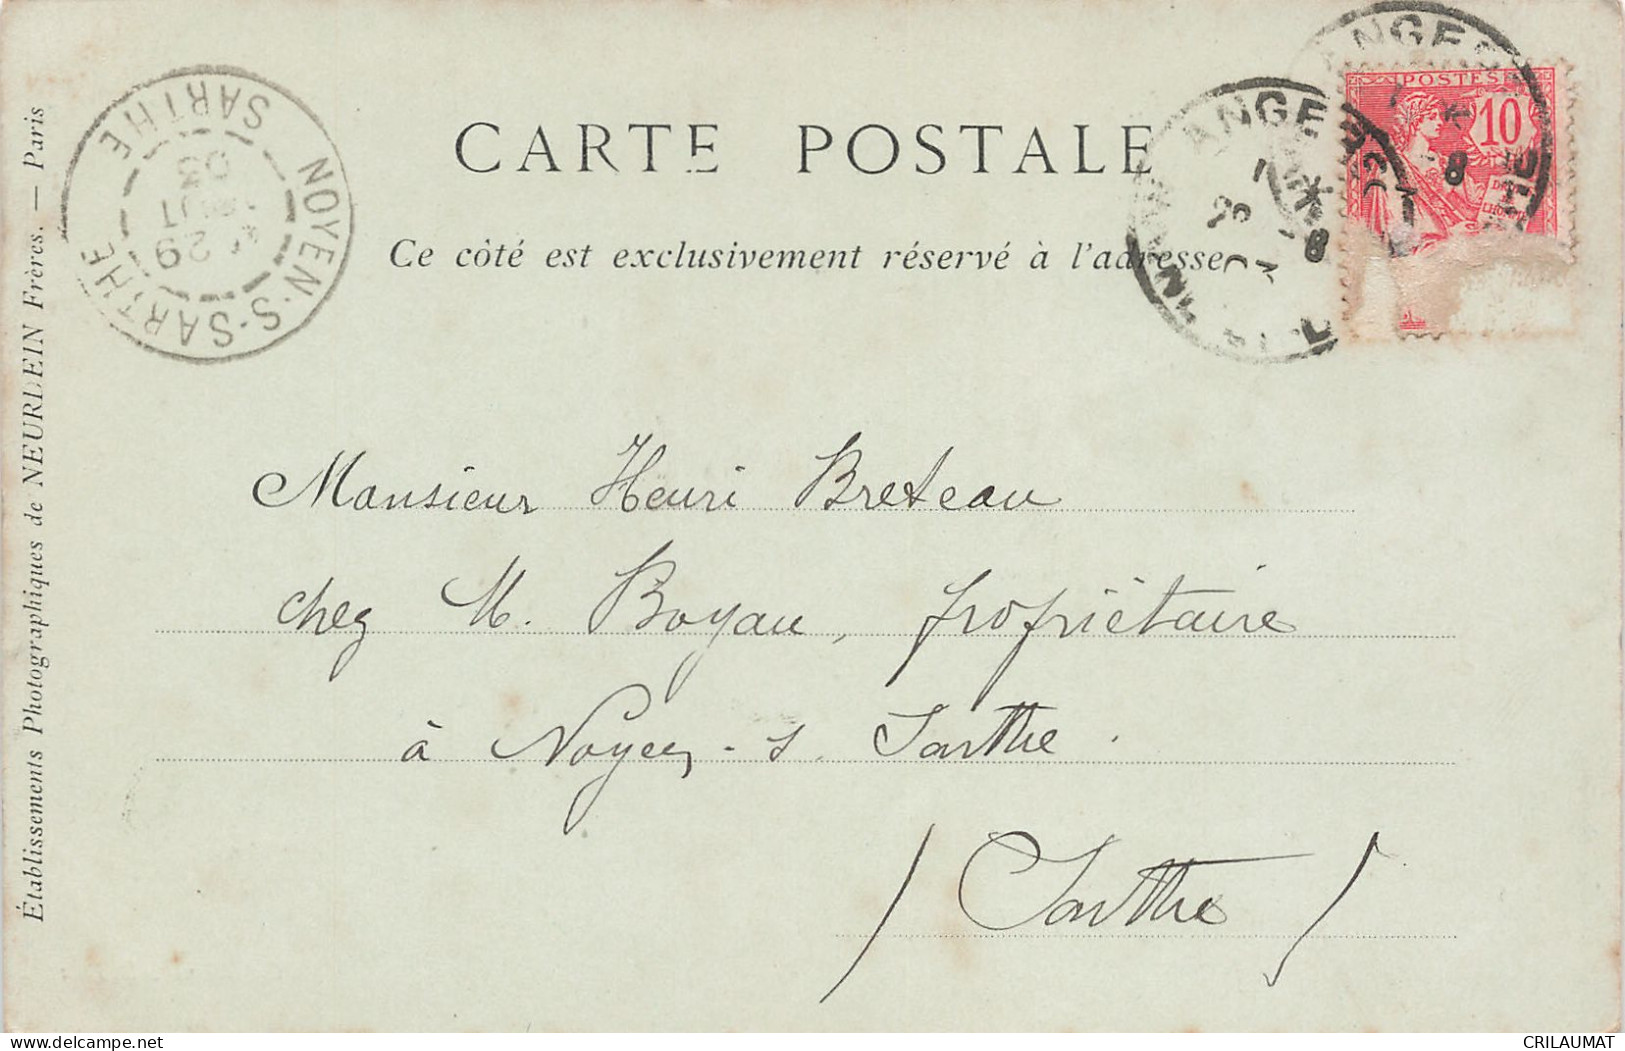 CARTE POSTALE
Ce côté est exclusivement réservé à l'adresse
Établissements Photographiques de NEURDEIN Frères. — Paris
NOYEN-S-SARTHE
SARTHE
29
AOUT
03
ANGERS
ANGERS
8
8
POSTES
10
Monsieur Henri Breteau
chez M. Boyau, propriétaire
à Noyen-s. Sarthe.
(Sarthe)
CRILAUMAT